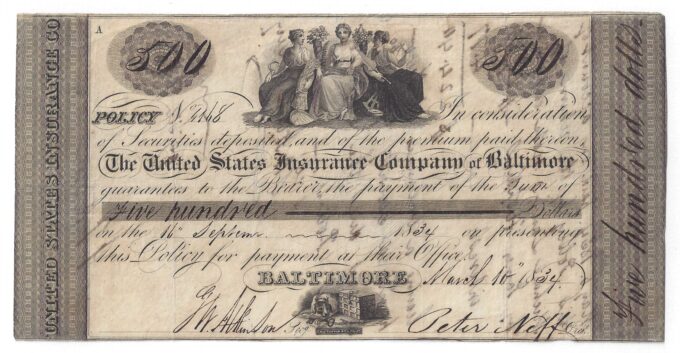 A
500
500
POLICY N. 2148
In consideration
of Securities deposited, and of the premium paid thereon,
The United States Insurance Company of Baltimore
guarantees to the Bearer the payment of the Sum of
Five hundred Dollars
on the 16th Septem 1834 on presenting
this Policy for payment at their Office
BALTIMORE March 10th 1834
Peter Neff
UNITED STATES INSURANCE CO
Five hundred dolls.